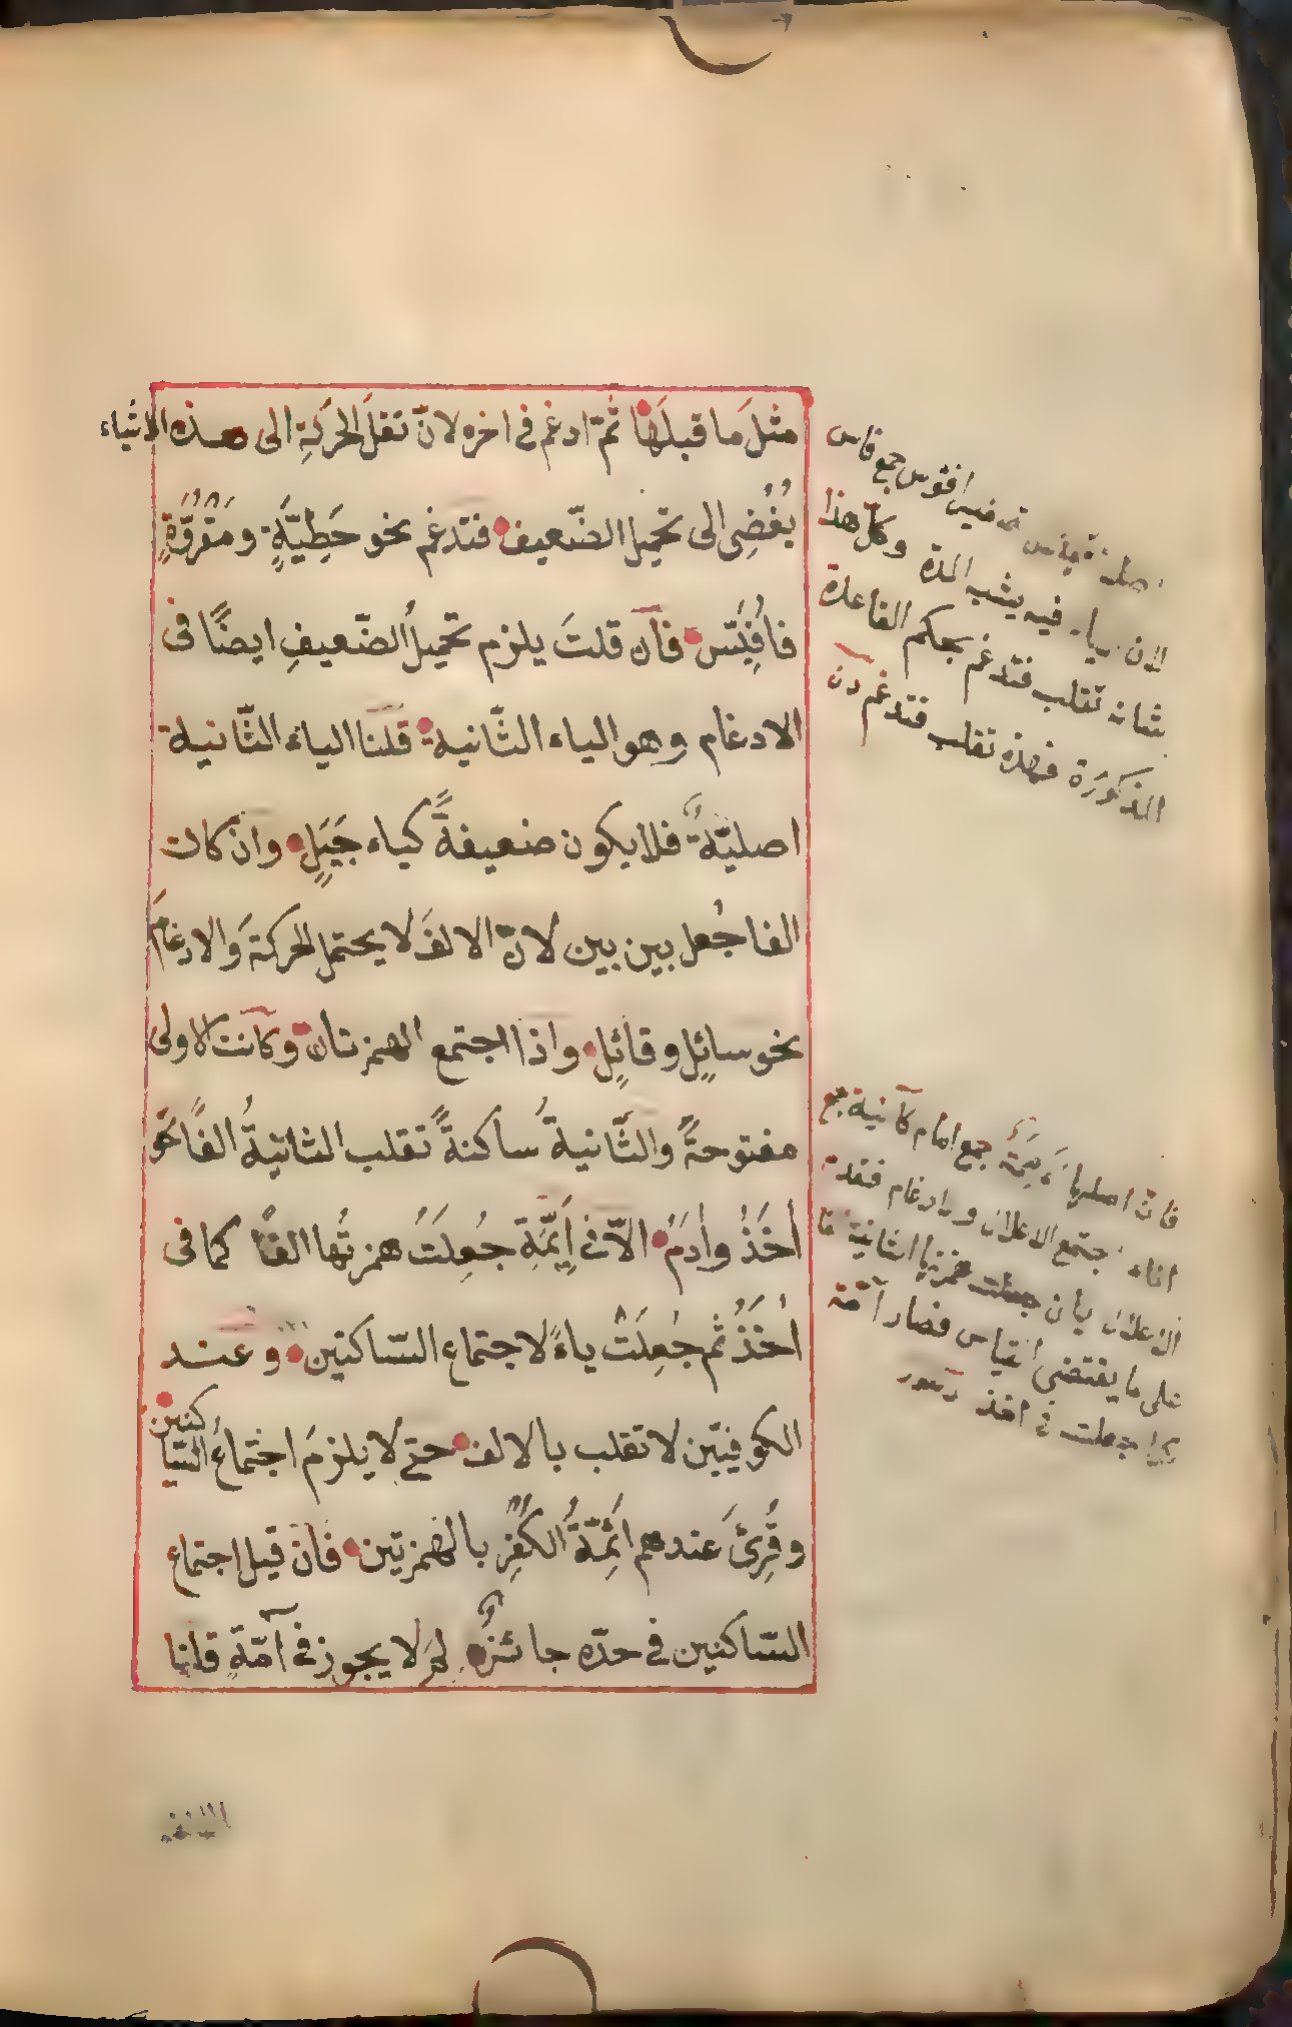 مثلَ ما قبلَها ثمّ ادغم فى اخره لانّ نقلَ الحركةِ الى هذه الاشياء
يُفْضِى الى تحميل الضّعيف فتدغم نحو خَطِيَّةٍ ومَقْرُوَّةٍ
فاُفَيِّسٍ فان قلتَ يلزم تحميلُ الضّعيفِ ايضًا فى
الادغام وهو الياء الثّانية قلنا الياء الثّانية
اصليّةٌ فلا يكون ضعيفةً كياء جَيَلٍ وان كان
الفا جُعل بين بين لانّ الالفَ لا يحتمل الحركةَ والادغامَ
نحو سايِلٍ وقايِلٍ واذا اجتمع الهمزتان وكانت الاولى
مفتوحةً والثّانيةُ ساكنةً تقلب الثانيةُ الفًا نحو
اٰخَذُ واٰدَمُ الّا فى اَيِمَّةِ جُعِلَتْ همزتُها الفًا كما فى
اٰخَذُ ثم جُعِلَتْ ياءً لاجتماع السّاكنين وعند
الكوفيّين لا تقلب بالالف حتّى لا يلزمَ اجتماعُ السّاكنين
وقُرِئَ عندهم اَئِمَّةَ الكُفْرِ بالهمزتين فان قيل اجتماع
السّاكنين فى حدّه جائزٌ لِمَ لا يجوز فى اٰمّةٍ قلنا
افؤس جمع فاس
لان فيه يشبه المدة وكلّ هذا
تقلب فتدغم بحكم القاعدة
المذكورة فهذه تقلب فتدغم
جمع امام كآنية جمع
اناء اجتمع الاعلال والادغام فقدم
الاعلال بان جعلت همزتها الثانية
على ما يقتضى القياس فصار آممة
كما جعلت فى اخذ